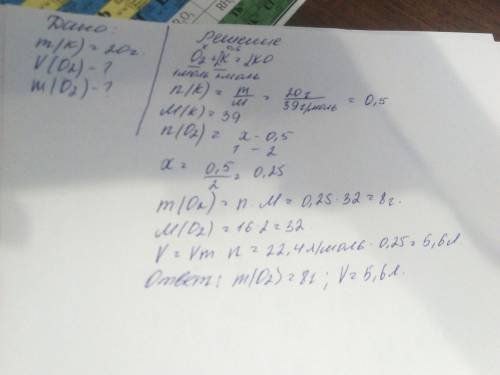 Дано:
m(K)=20г.
V(O₂)-?
m(O₂)-?
Решение
x 0,5
O₂+2K=2KO
1моль 2моль
n(K)= m/M = 20г/39г/моль = 0,5
M(K)=39
n(O₂)= x-0,5
1-2
x= 0,5/2=0,25
m(O₂)=n·M=0,25·32=8г.
M(O₂)=16·2=32
V=Vm·n=22,4л/моль·0,25=5,6л
Ответ: m(O₂)=8г; V=5,6л.